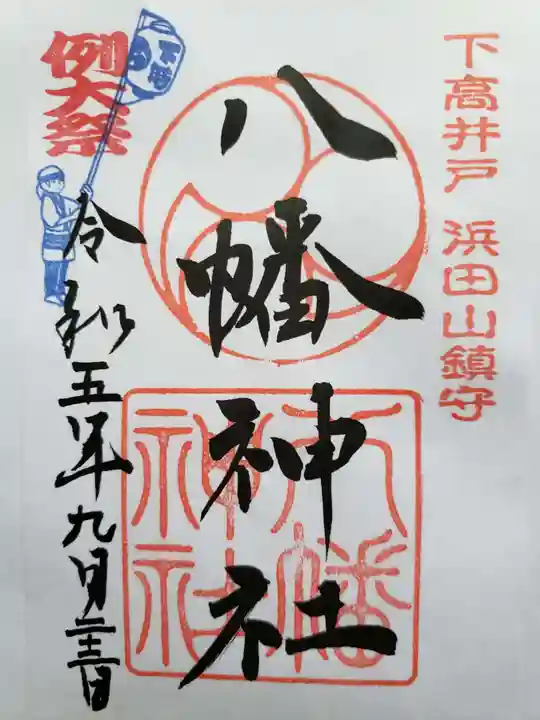 下高井戸 浜田山鎮守
八幡神社
八幡神社
例大祭
令和五年九月二十三日